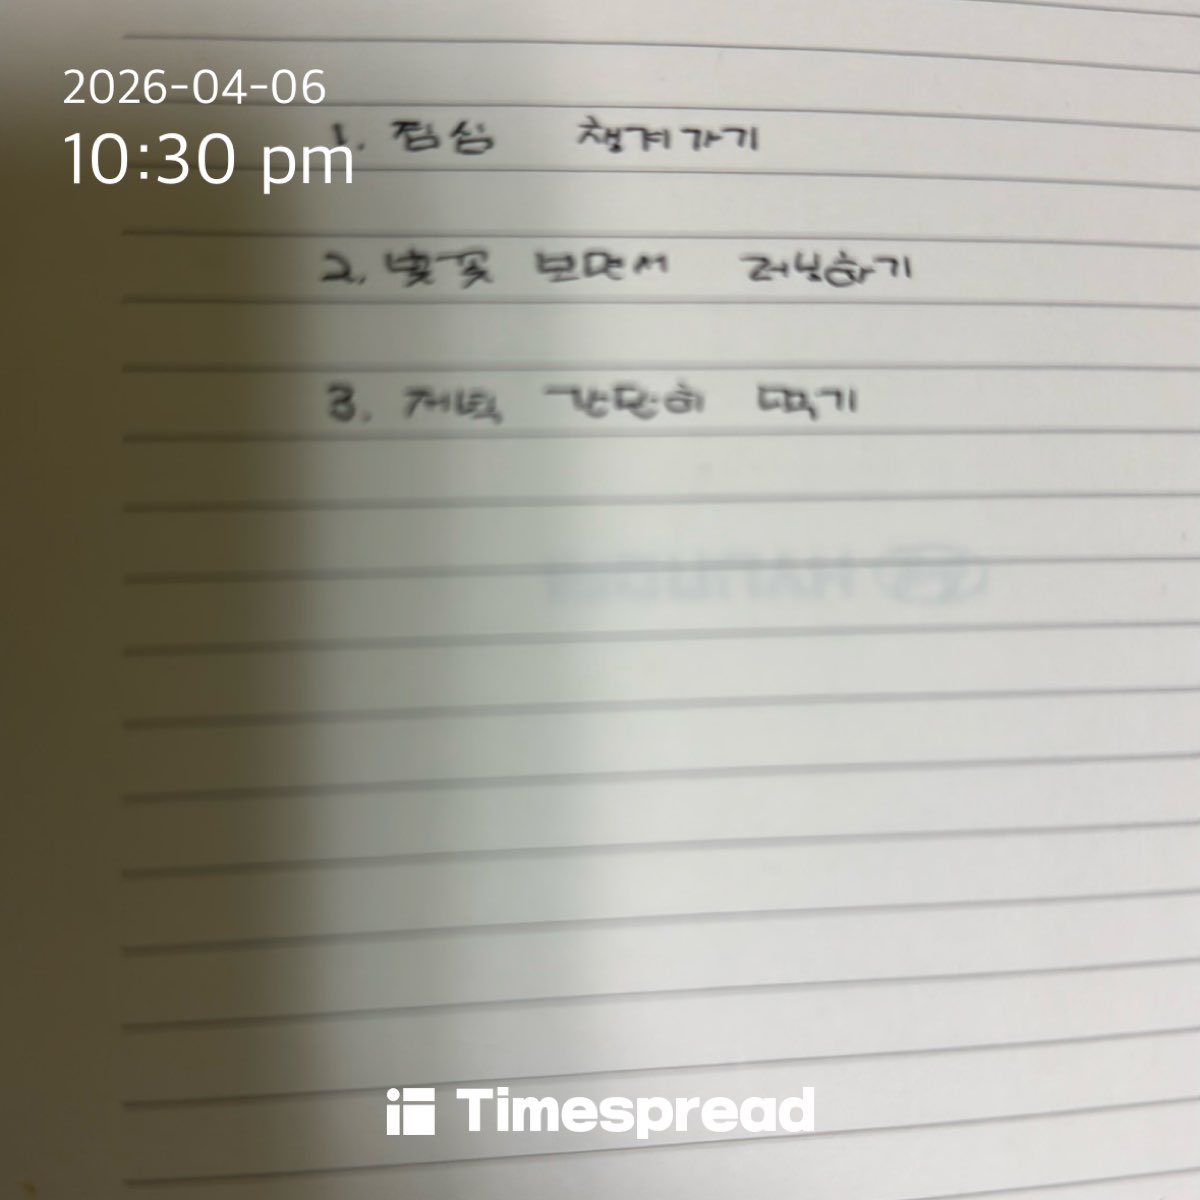 2026-04-06
10:30 pm
1. 점심 챙겨가기
2. 벚꽃 보면서 러닝하기
3. 저녁 간단히 먹기
Timespread